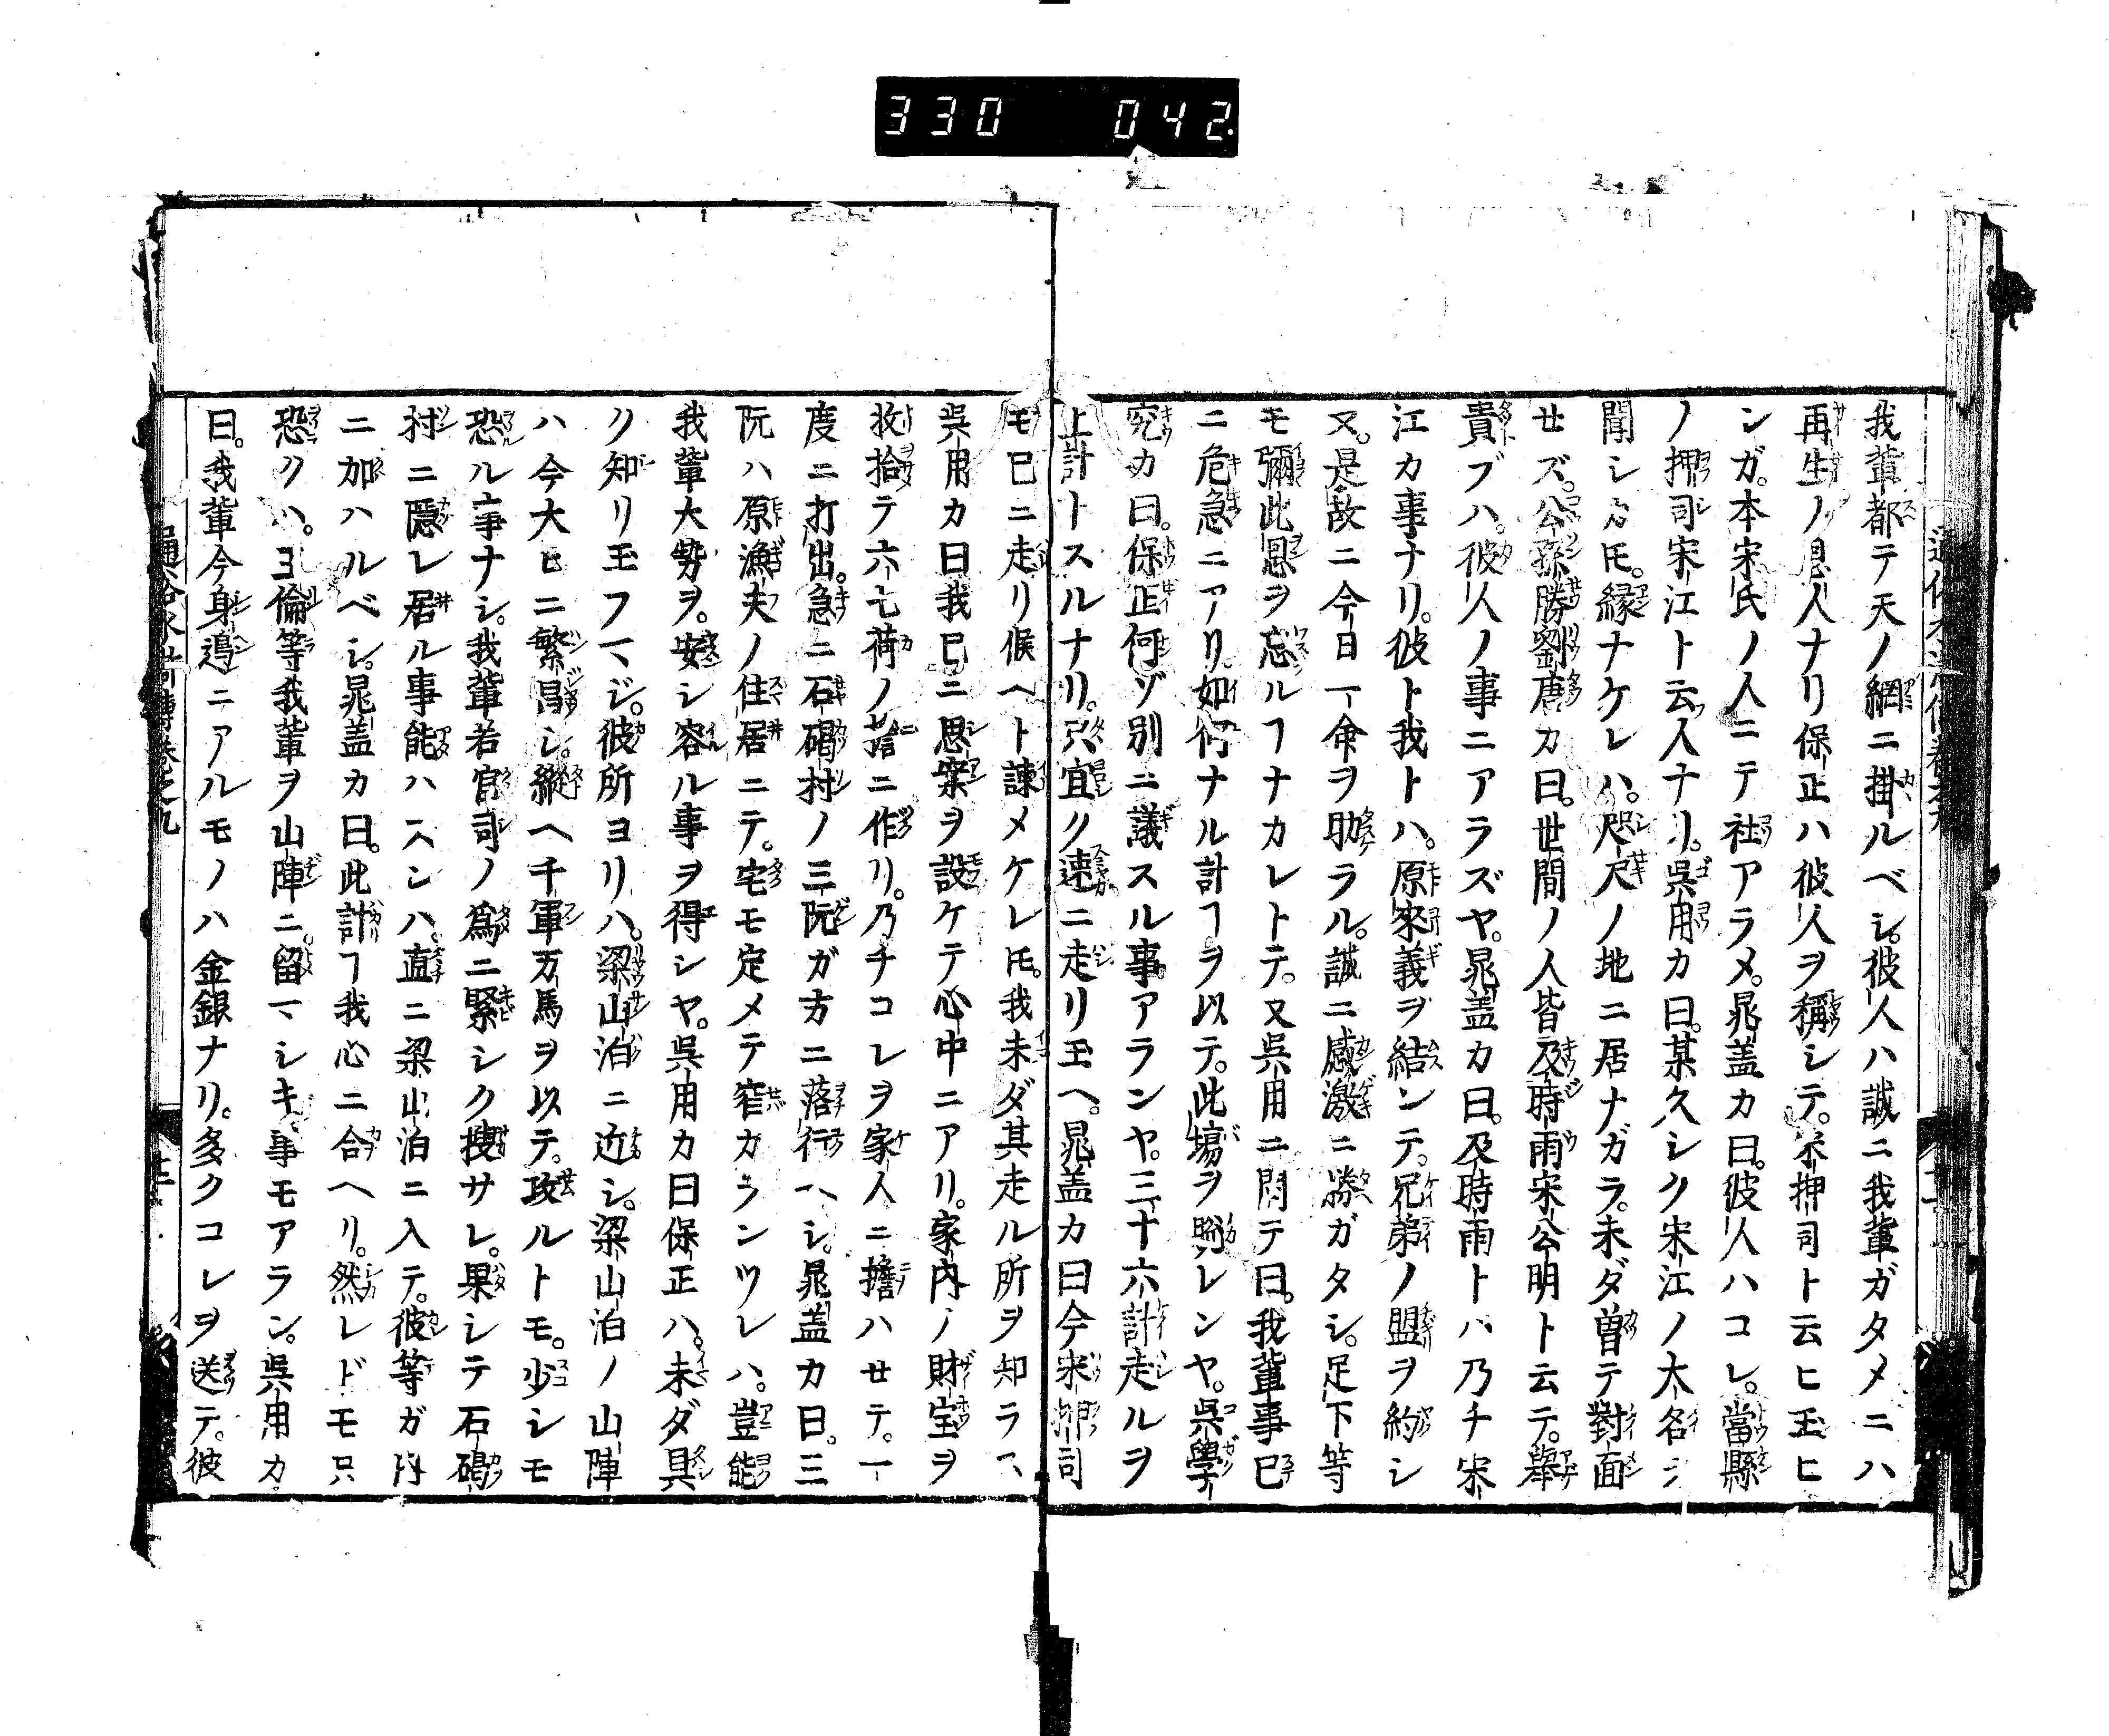 330 042
我輩都テ天ノ網ニ掛ルベシ。彼人ハ誠ニ我輩ガタメニハ
再生ノ恩人ナリ保正ハ彼人ヲ稱シテ。宋押司ト云ヒ玉ヒ
ンガ。本宋氏ノ人ニテ社アラメ。晁盖カ曰。彼人ハコレ。當縣
ノ押司宋江ト云人ナリ。呉用カ曰。某久シク宋江ノ大名ヲ
聞シカ𪜈。縁ナケレハ。咫尺ノ地ニ居ナガラ。未ダ曽テ對面
せズ。公孫勝劉唐カ曰。世間ノ人皆及時雨宋公明ト云テ。舉
貴ブハ。彼人ノ事ニアラズヤ。晁盖カ曰。及時雨トハ乃チ宋
江カ事ナリ。彼ト我トハ。原來義ヲ結ンテ。兄弟ノ盟ヲ約シ
又。是故ニ今日一命ヲ助ラル。誠ニ感激ニ勝ガタシ。足下等
モ彌此恩ヲ忘ルヿナカレトテ。又呉用ニ問テ曰。我輩事已
ニ危急ニアリ。如何ナル計ヿヲ以テ。此塲ヲ脱レンヤ。呉學
究カ曰。保正何ゾ別ニ議スル事アランヤ。三十六計走ルヲ
上計トスルナリ。只宜ク速ニ走リ玉ヘ。晁盖カ曰今宋押司
モ已ニ走リ候ヘト諫メケレ𪜈。我未ダ其走ル所ヲ知ラス
呉用カ曰我已ニ思案ヲ設ケテ心中ニアリ。家内ノ財宝ヲ
收拾テ六七荷ノ擔ニ作リ。乃チコレヲ家人ニ擔ハせテ。一
度ニ打出。急ニ石碣村ノ三阮ガ方ニ落行ヘシ。晁盖カ曰。三
阮ハ原漁夫ノ住居ニテ。宅モ定メテ窄カランツレハ。豈能
我輩大勢ヲ。安シ容ル事ヲ得シヤ。呉用カ曰保正ハ。未ダ具
ク知リ玉フマジ。彼所ヨリハ。梁山泊ニ近シ。梁山泊ノ山陣
ハ今大ヒニ繁昌シ。縱ヘ千軍万馬ヲ以テ。攻ルトモ。少シモ
恐ル事ナシ。我輩若官司ノ爲ニ緊シク搜サレ。果シテ石碣
村ニ隱レ居ル事能ハスンハ。直ニ梁山泊ニ入テ。彼等ガ内
ニ加ハルベシ。晁盖カ曰。此計ヿ我心ニ合ヘリ。然レドモ只
恐クハ。ヨ倫等我輩ヲ山陣ニ。留マシキ。事モアラン。呉用カ
曰。我輩今身邊ニアルモノハ金銀ナリ。多クコレヲ送テ。彼